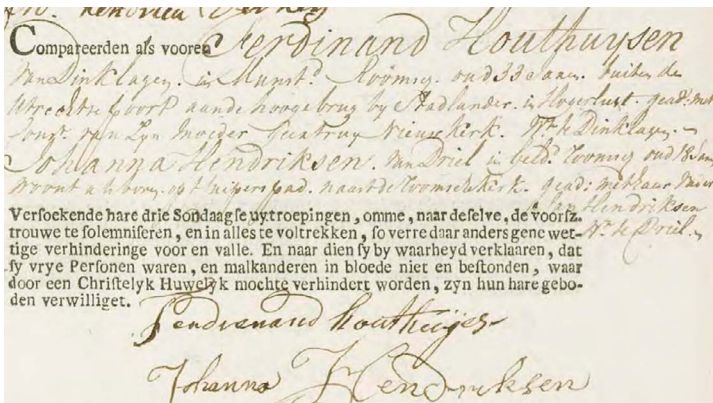 Compareerden als vooren Ferdinand Houthuysen
van Dinklagen. in Munst.d Roomsg. oud 33 Jaaren. buiten de
Utrechtse poort aande hoogebrug by Stadlander. in Hogerlust. gead: met
van Zyn Moeder Geertruy Nieuwkerk. te Dinklagen.
Johanna Hendriksen. van Driel in Geld. roomsg oud 18 Jaar
woont op t Kuiperspad. naast de Roomsche kerk. gead: met haar
Jan Hendriksen
te Driel.
Versoekende hare drie Sondaagse uytroepingen, omme, naar deselve, de voorsz.
trouwe te solemniseren, en in alles te voltrekken, so verre daar anders gene wet-
tige verhinderinge voor en valle. En naar dien sy by waarheyd verklaaren, dat
sy vrye Personen waren, en malkanderen in bloede niet en bestonden, waar
door een Christelyk Huwelyk mochte verhindert worden, zyn hun hare gebo-
den verwilliget.
Ferdinand houthuijse
Johanna Hendriksen